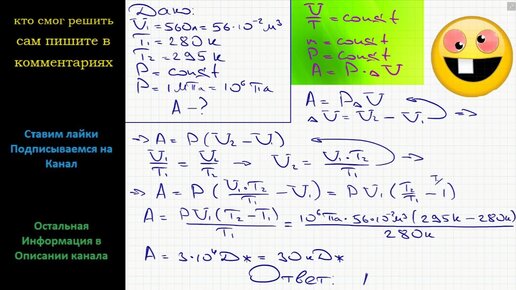 кто смог решить
сам пишите в
комментариях
Ставим лайки
Подписываемся на
Канал
Остальная
Информация в
Описании канала
Дано:
V₁ = 560л = 56·10⁻² м³
T₁ = 280к
T₂ = 295к
P = const
P = 1 МПа = 10⁶ Па
A - ?
V/T = const
m = const
P = const
A = P·ΔV
A = PΔV
ΔV = V₂ - V₁
→ A = P(V₂ - V₁)
V₁/T₁ = V₂/T₂ → V₂ = V₁·T₂/T₁ →
→ A = P(V₁·T₂/T₁ - V₁) = PV₁(T₂/T₁ - 1)
A = PV₁(T₂ - T₁)/T₁ = 10⁶Па·56·10⁻²м³(295к - 280к)/280к
A = 3·10⁴Дж = 30кДж
Ответ: